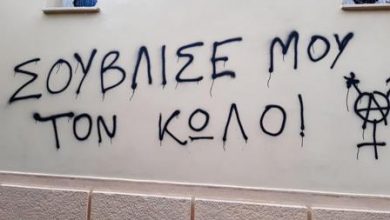 ΣΟΥΒΛΙΣΕ ΜΟΥ
ΤΟΝ ΚΩΛΟ!